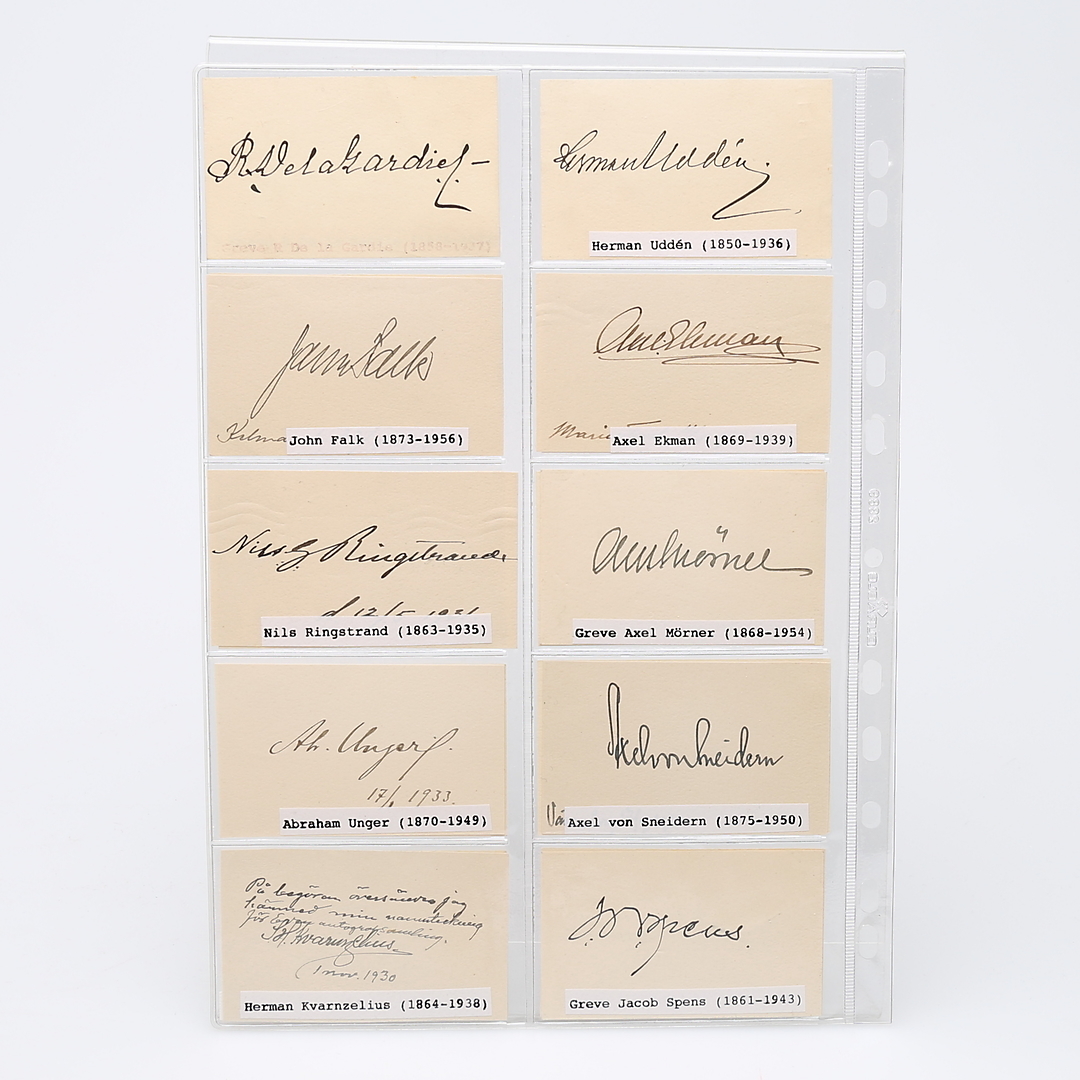 R. De la Gardie
Greve R De la Gardie (1858-1937)
Herman Uddén.
Herman Uddén (1850-1936)
John Falk
John Falk (1873-1956)
Axel Ekman
Axel Ekman (1869-1939)
Nils G Ringstrand
d 12/5 1931
Nils Ringstrand (1863-1935)
Axel Mörner
Greve Axel Mörner (1868-1954)
Ab. Unger.
17/1 1933.
Abraham Unger (1870-1949)
Axel von Sneidern
Axel von Sneidern (1875-1950)
På begäran översändes jag
härmed min namnteckning
för autografsamling.
H. Kvarnzelius.
1 nov. 1930
Herman Kvarnzelius (1864-1938)
Spens.
Greve Jacob Spens (1861-1943)